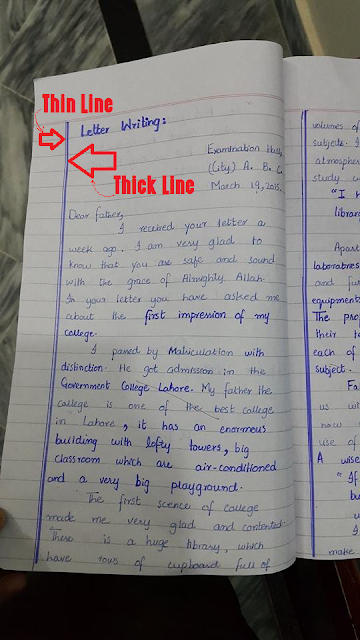 Thin Line
Letter Writing:
Examination Hall,
(City) A. B. C.
Thick Line
March 19, 2015.
Dear father,
I received your letter a
week ago. I am very glad to
know that you are safe and sound
with the grace of Almighty Allah.
In your letter you have asked me
about the first impression of my
college.
I passed by Matriculation with
distinction. He got admission in the
Government College Lahore. My father the
college is one of the best college
in Lahore, it has an enormous
building with lofty towers, big
classroom which are air-conditioned
and a very big playground.
The first scence of college
made me very glad and contented.
There is a huge library, which
have rows of cupboard full of
volumes of
subjects. I
atmosphere
study
"I
libra
Apart
laboratories
and fur
equipments
The pro
their
each of
subject.
Fa
us wi
now
use of
A wise
"If
bu
u
I
make